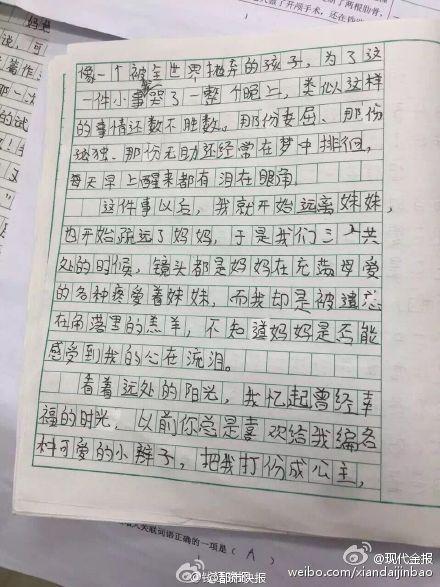 断了两根肋骨,
像一个被全世界抛弃的孩子,为了这
一件小事哭了一整个晚上,类似这样
的事情还数不胜数。那份委屈、那份
孤独、那份无助还经常在梦中排徊,
每天早上醒来都有泪在眼角。
这件事以后,我就开始远离妹妹,
也开始疏远了妈妈,于是我们三个共
处的时候,镜头都是妈妈在充满母爱
的各种疼爱着妹妹,而我却是被遗忘
在角落里的羔羊,不知道妈妈是否能
感受到我的心在流泪。
看着远处的阳光,我忆起曾经幸
福的时光,以前你总是喜欢给我编各
种可爱的小辫子,把我打份成公主,
关联词语正确的一项是(A)
@现代金报
weibo.com/xiandaijinbao